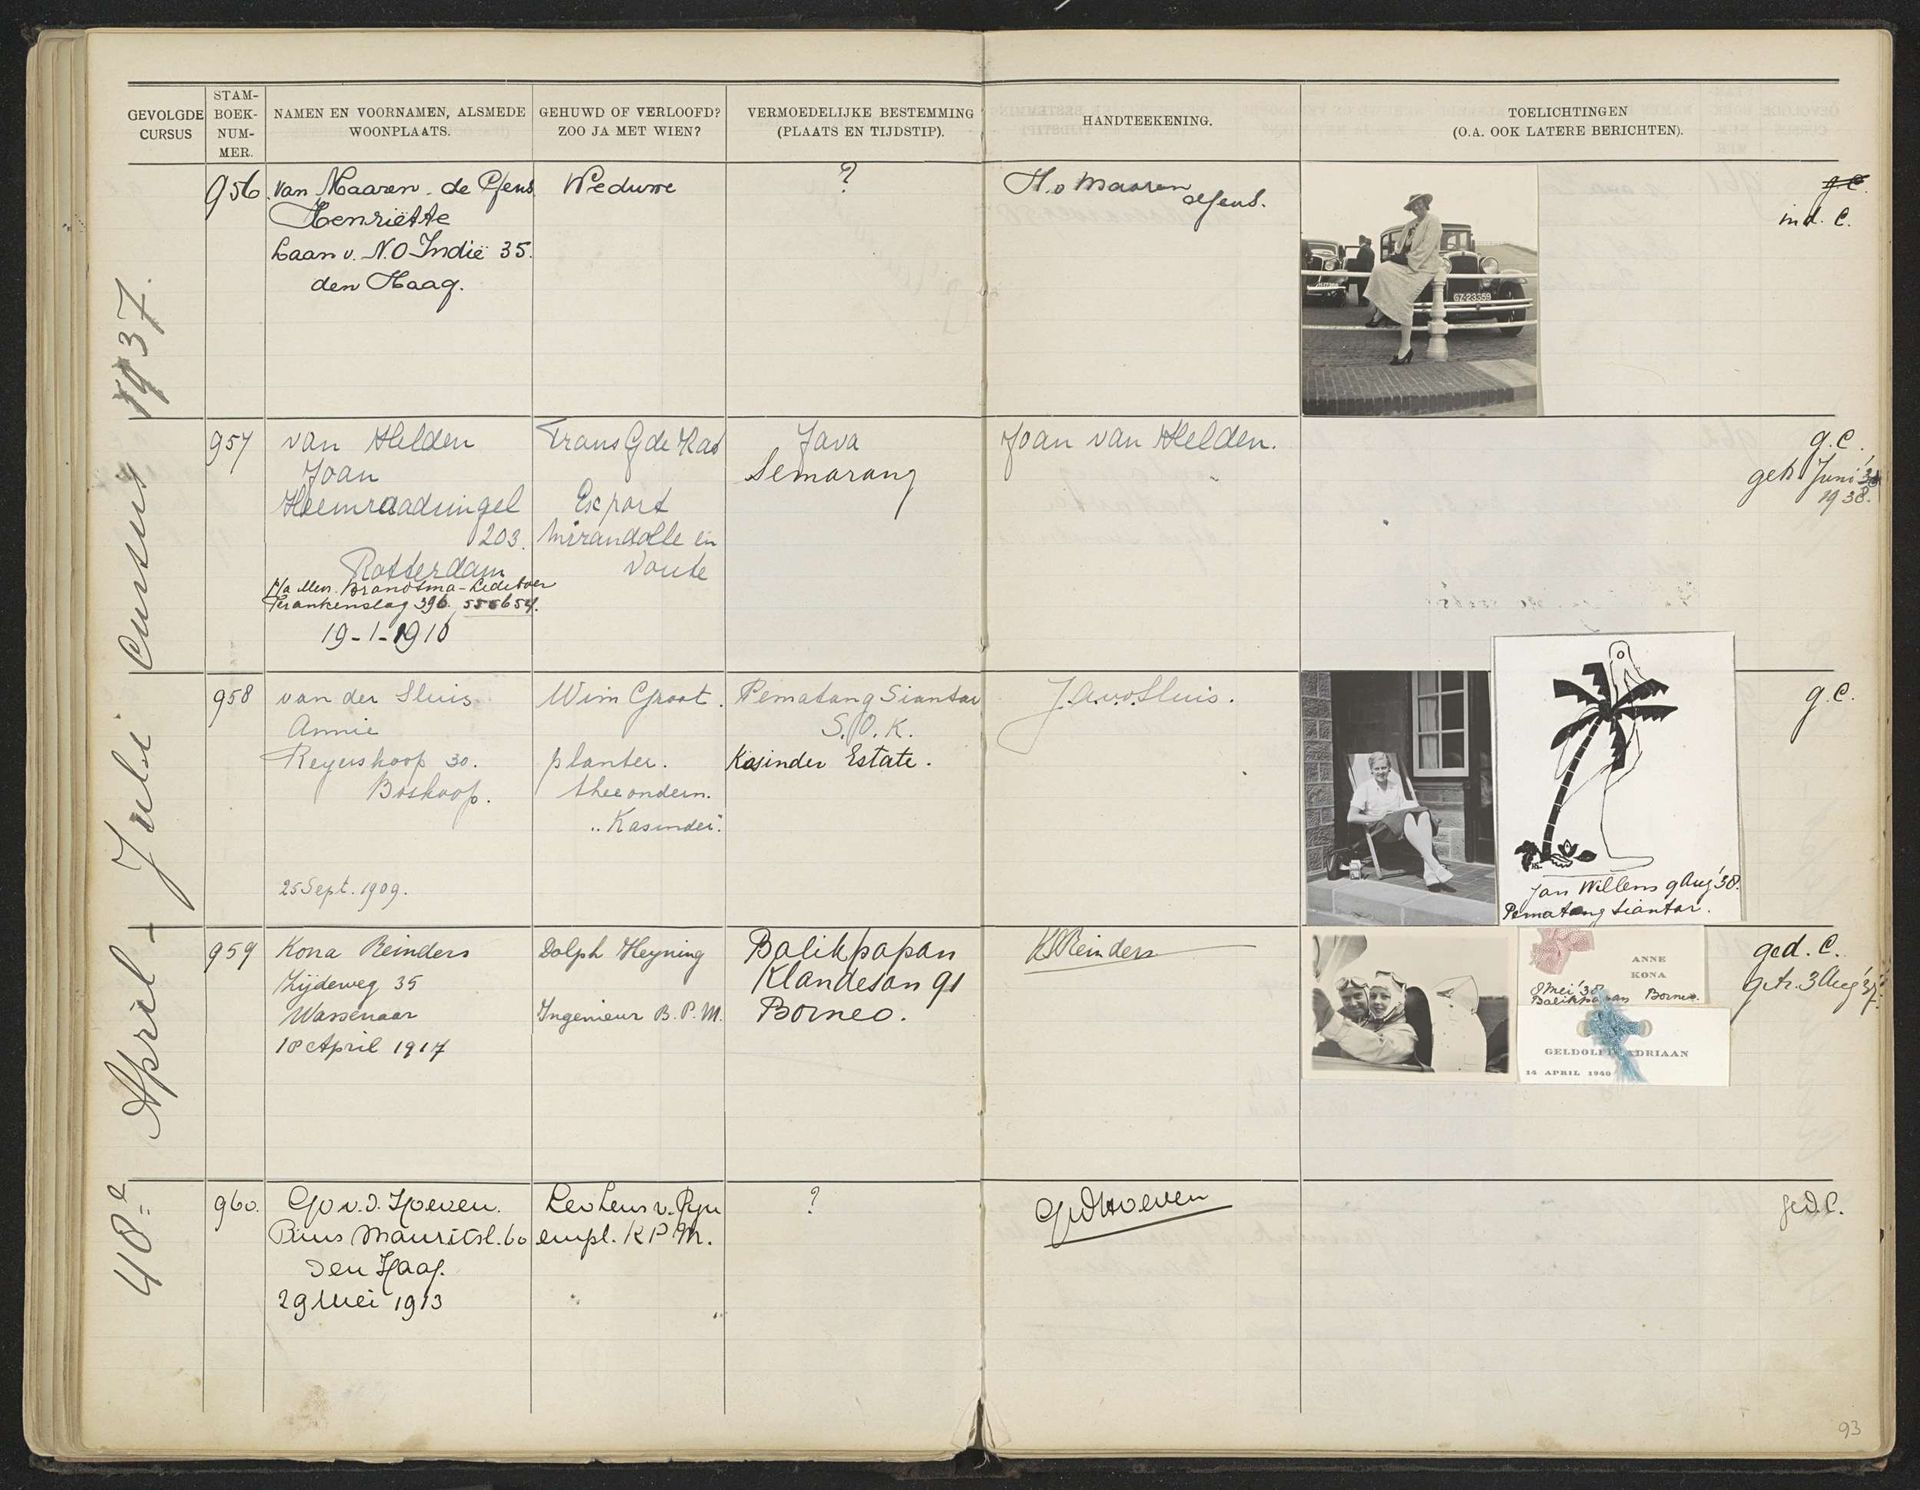 GEVOLGDE
CURSUS
STAM-
BOEK-
NUM-
MER.
NAMEN EN VOORNAMEN, ALSMEDE
WOONPLAATS.
GEHUWD OF VERLOOFD?
ZOO JA MET WIEN?
VERMOEDELIJKE BESTEMMING
(PLAATS EN TIJDSTIP).
HANDTEEKENING.
TOELICHTINGEN
(O.A. OOK LATERE BERICHTEN).
48e April - Juli cursus 1937.
956
van Maaren - de
Henriëtte
Laan v. N.O Indië 35.
den Haag.
Weduwe
?
H.v Maaren
GZ-23559
g.C.
ind. C.
957
van Helden
Joan
Heemraadsingel
203.
Rotterdam
Brandsma - Ledeboer
Frankenslag 396. 555654.
19-1-1910
Frans Gde
Export
Mirandolle en
Voute
Java
Semarang
Joan van Helden.
g.C.
getr Juni
1938.
958
van der Sluis
Annie
Reyerskoop 30.
Boskoop.
25 Sept. 1909.
Wim Groot.
planter.
theeondern.
"Kasinder".
Pematang Siantar
S.O.K.
Kasinder Estate.
J.A.v.d.Sluis.
Jan Willem 9 Aug '38.
Pematang Siantar.
g.C.
959
Kona Reinders
Zijdeweg 35
Wassenaar
18 April 1917
Dolph Heyning
Ingenieur B.P.M.
Balikpapan
Klandesan 91
Borneo.
K Reinders
ANNE
KONA
8 Mei '38
Balikpapan Borneo.
GELDOLPH ADRIAAN
14 APRIL 1940
ged. C.
getr. 3 Aug '37.
960.
Go v.d. Hoeven.
Prins Mauritsl. 60
Den Haag.
29 Mei 1913
Leo Lens v. Ryn
empl. K P M.
?
GvdHoeven
ged C.
93